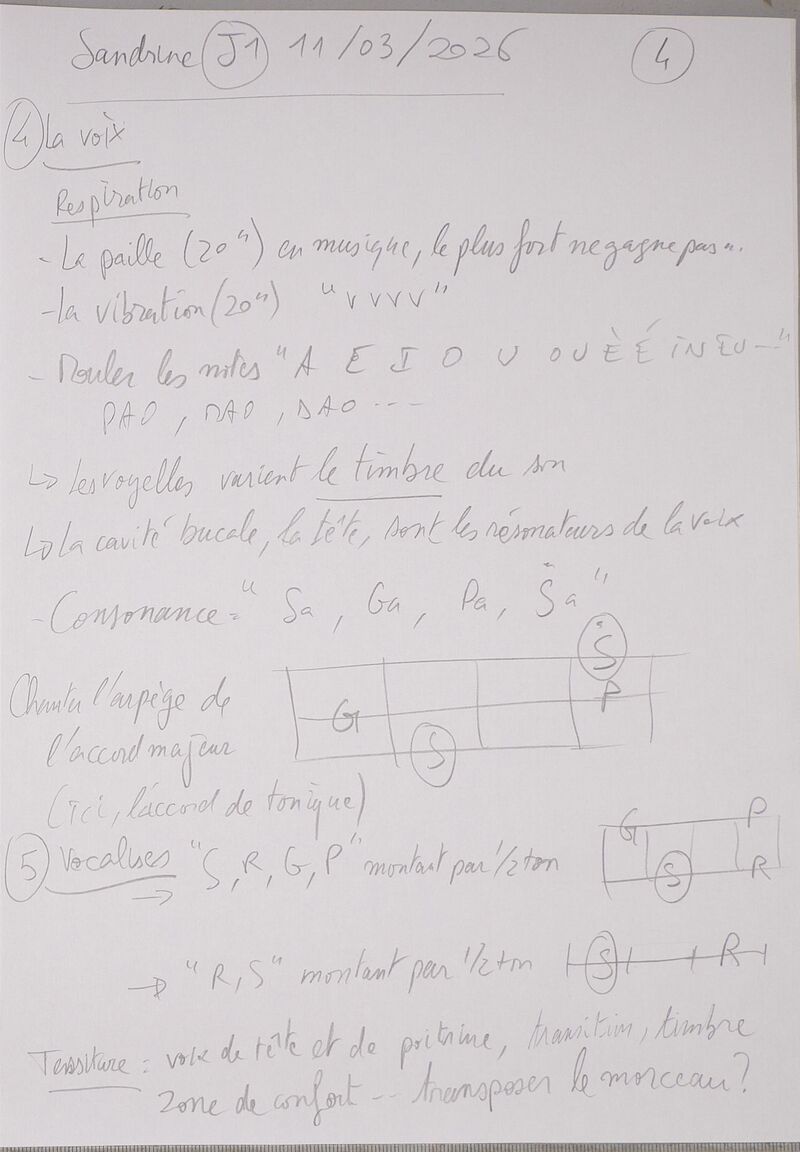 Sandrine J1 11/03/2026 4
4 La voix
Respiration
- La paille (20") en musique, le plus fort ne gagne pas ".
- La vibration (20") "v v v v"
- Rouler les notes "A E I O U OU È É IN EU ---"
PAO, MAO, DAO ---
↳ Les voyelles varient le timbre du son
↳ La cavité bucale, la tête, sont les résonateurs de la voix
- Consonance = "Sa, Ga, Pa, Ṡa"
Ṡ
Chanter l'arpège de
G P
l'accord majeur
S
(ici, l'accord de tonique)
G P
5 Vocalises "S, R, G, P" montant par 1/2 ton
S R
→
→ "R, S" montant par 1/2 ton S R
Tessiture = voix de tête et de poitrine, transition, timbre
zone de confort -- transposer le morceau ?